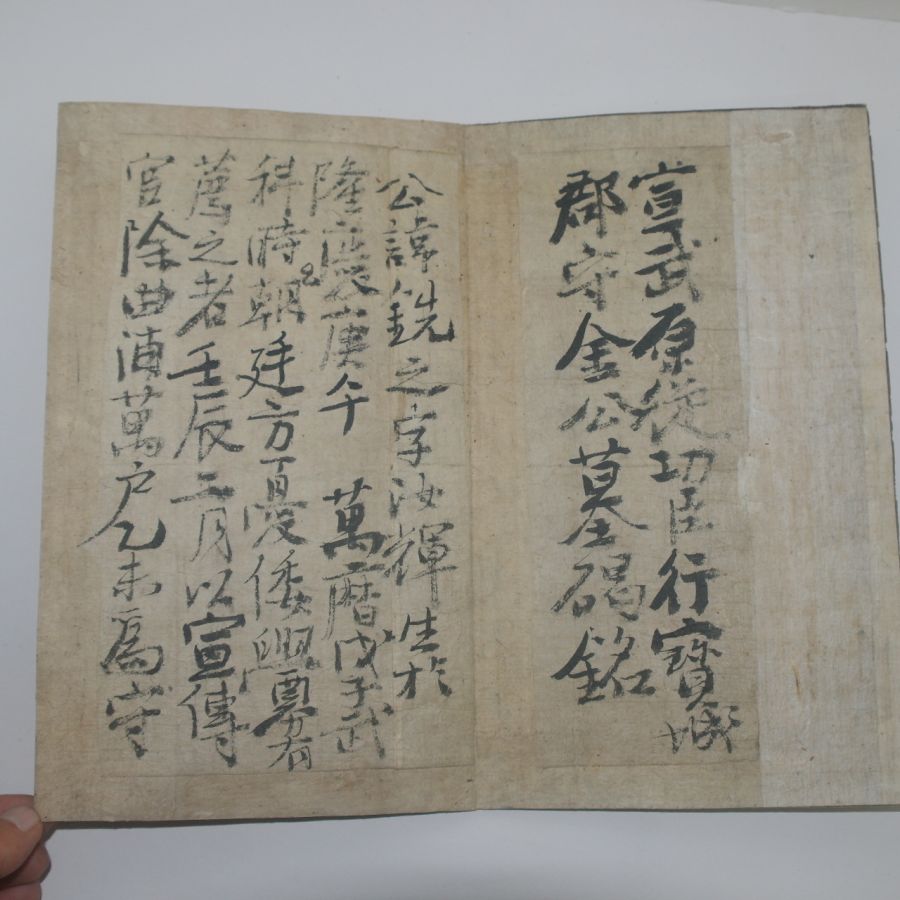 宣武原從功臣行寶城
郡守金公墓碣銘
公諱銑之字汝輝生於
隆慶庚午 萬曆戊子武
科時朝廷方憂倭興 有
薦之者壬辰二月以宣傳
官除曲浦萬户乙未爲守